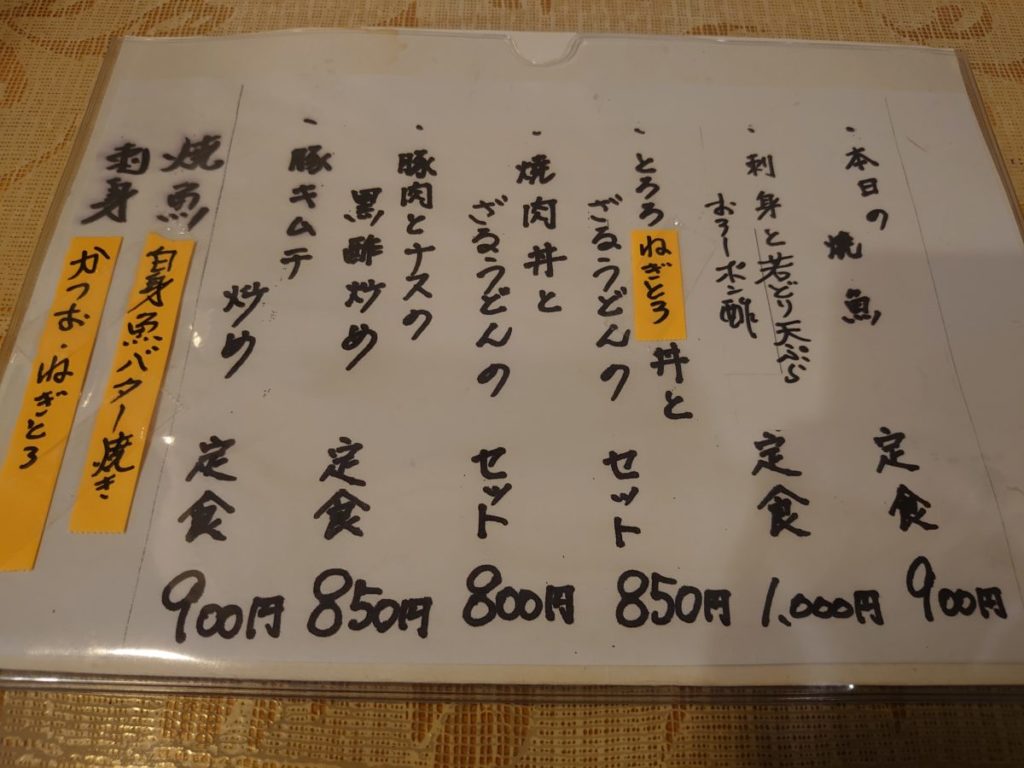 ・本日の焼魚定食 900円
・刺身と若どり天ぷら
おろしポン酢
定食 1,000円
・とろろねぎとろ丼と
ざるうどんの
セット 850円
・焼肉丼と
ざるうどんの
セット 800円
・豚肉とナスの
黒酢炒め
定食 850円
・豚キムチ
炒め
定食 900円
焼魚 白身魚バター焼き
刺身 かつお・ねぎとろ